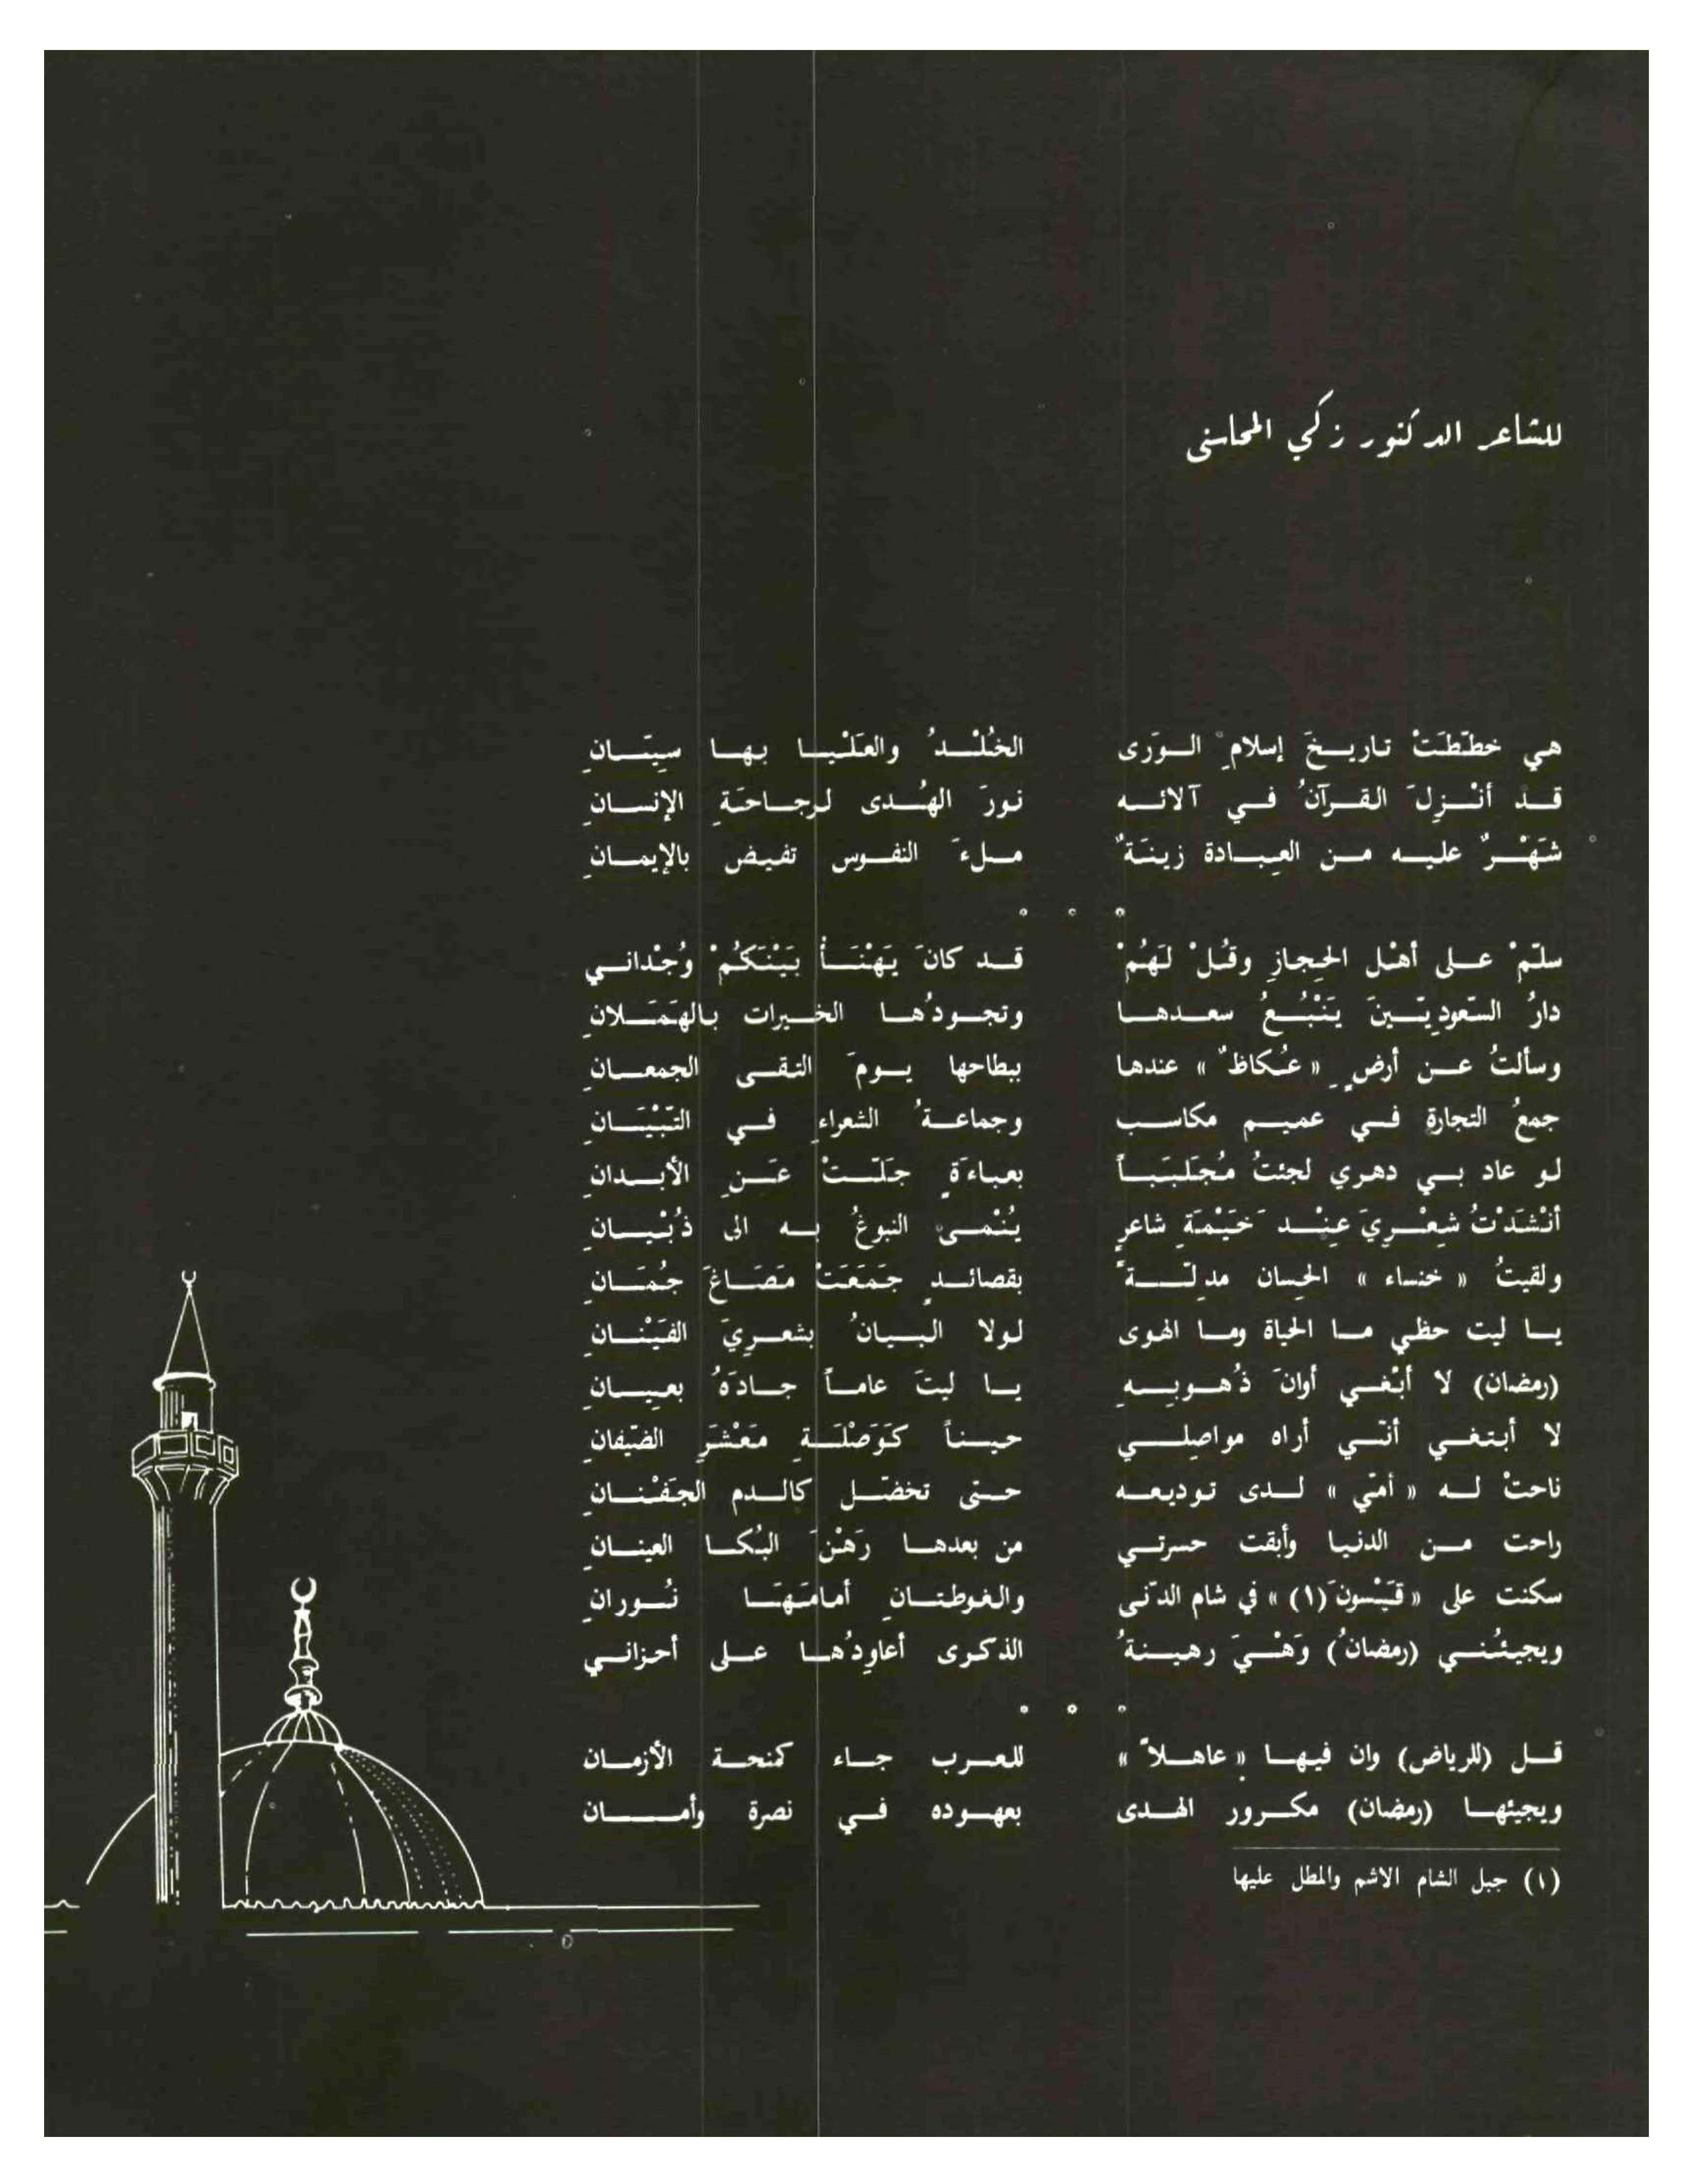 للشاعر الدكتور زكي المحاسني
هي خطّطَتْ تاريخَ إسلامِ الوَرَى الخُلْدُ والعَلْيا بها سِيّانِ
قد أنْزِلَ القرآنُ في آلائه نورَ الهُدى لرجاحَةِ الإنسانِ
شَهْرٌ عليه من العِبادة زينَةٌ ملءَ النفوس تفيض بالإيمانِ
سلّمْ على أهْل الحِجازِ وقُلْ لَهُمْ قد كانَ يَهْنَأُ بَيْنَكُمْ وُجْداني
دارُ السّعوديّينَ يَنْبُعُ سعدها وتجودُها الخيرات بالهَمَلانِ
وسألتُ عن أرضٍ « عُكاظٌ » عندها ببطاحها يومَ التقى الجمعانِ
جمعُ التجارةِ في عميم مكاسب وجماعةُ الشعراءِ في التّبْيَانِ
لو عاد بي دهري لجئتُ مُجَلبَباً بعباءَةٍ جَلّتْ عَنِ الأبدانِ
أنْشَدْتُ شِعْرِيَ عِنْدَ خَيْمَةِ شاعرٍ يُنْمى النبوغُ به الى ذُبْيانِ
ولقيتُ « خنساء » الحِسان مدلّةً بقصائدٍ جَمَعَتْ مَصَاغَ جُمَانِ
يا ليت حظي ما الحياة وما الهوى لولا البيانُ بشعرِيَ الفَيْنانِ
(رمضان) لا أبْغي أوانَ ذُهوبِهِ يا ليتَ عاماً جادَهُ بعِيانِ
لا أبتغي أنّني أراه مواصِلي حيناً كَوَصْلَةِ مَعْشَرِ الضّيفانِ
ناحتْ له « أمّي » لدى توديعه حتى تخضّل كالدم الجَفْنانِ
راحت من الدنيا وأبقت حسرتي من بعدها رَهْنَ البُكا العينانِ
سكنت على « قَيْسونَ (١) » في شام الدّنى والغوطتانِ أمامَهَا نُورانِ
ويجيئُني (رمضانُ) وَهْيَ رهينةُ الذكرى أعاوِدُها على أحزاني
قل (للرياض) وان فيها « عاهلاً » للعرب جاء كمنحة الأزمان
ويجيئها (رمضان) مكرور الهدى بعهوده في نصرة وأمان
(١) جبل الشام الاشم والمطل عليها